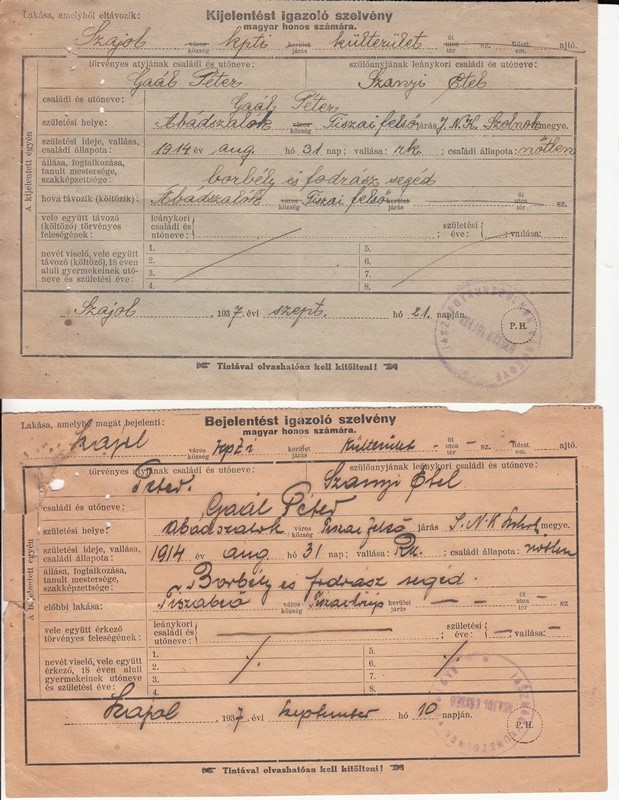 Kijelentést igazoló szelvény
magyar honos számára.
Lakása, amelyből eltávozik: Szajol város község kpti kerület járás külterület út utca tér — sz. — házszt. em. — ajtó.
törvényes atyjának családi és utóneve: szülőanyjának leánykori családi és utóneve:
Gaál Péter Szanyi Etel
A kijelentett egyén
családi és utóneve: Gaál Péter
születési helye: Abádszalók város község Tiszai felső járás J. N. K. Szolnok megye.
születési ideje, vallása, családi állapota: 1914 év aug. hó 31 nap; vallása: rk. ; családi állapota: nőtlen
állása, foglalkozása, tanult mestersége, szakképzettsége: borbély és fodrász segéd
hova távozik (költözik): Abádszalók város község Tiszai felső kerület járás — út utca tér — sz.
vele együtt távozó (költöző) törvényes feleségének: leánykori családi és utóneve: születési éve: vallása:
nevét viselő, vele együtt távozó (költöző), 18 éven aluli gyermekeinek utóneve és születési éve:
1. 5.
2. 6.
3. 7.
4. 8.
Szajol 1937. évi szept. hó 21. napján.
P. H.
Tintával olvashatóan kell kitölteni!
Bejelentést igazoló szelvény
magyar honos számára.
Lakása, amelybe magát bejelenti: Szajol város község kpti kerület járás külterület út utca tér — sz. — házszt. em. — ajtó.
törvényes atyjának családi és utóneve: szülőanyjának leánykori családi és utóneve:
Péter. Szanyi Etel
A bejelentett egyén
családi és utóneve: Gaál Péter
születési helye: Abádszalók város község Tiszai felső járás J. N. K. megye.
születési ideje, vallása, családi állapota: 1914 év aug hó 31 nap; vallása: Rk. ; családi állapota: nőtlen
állása, foglalkozása, tanult mestersége, szakképzettsége: Borbély és fodrász segéd.
előbbi lakása: város község kerület járás — — út utca tér — sz
vele együtt érkező törvényes feleségének: leánykori családi és utóneve: — születési éve: — vallása: —
nevét viselő, vele együtt érkező, 18 éven aluli gyermekeinek utóneve és születési éve:
1. 5.
2. 6.
3. 7.
4. 8.
Szajol 1937 évi szeptember hó 10 napján.
P. H.
Tintával olvashatóan kell kitölteni!